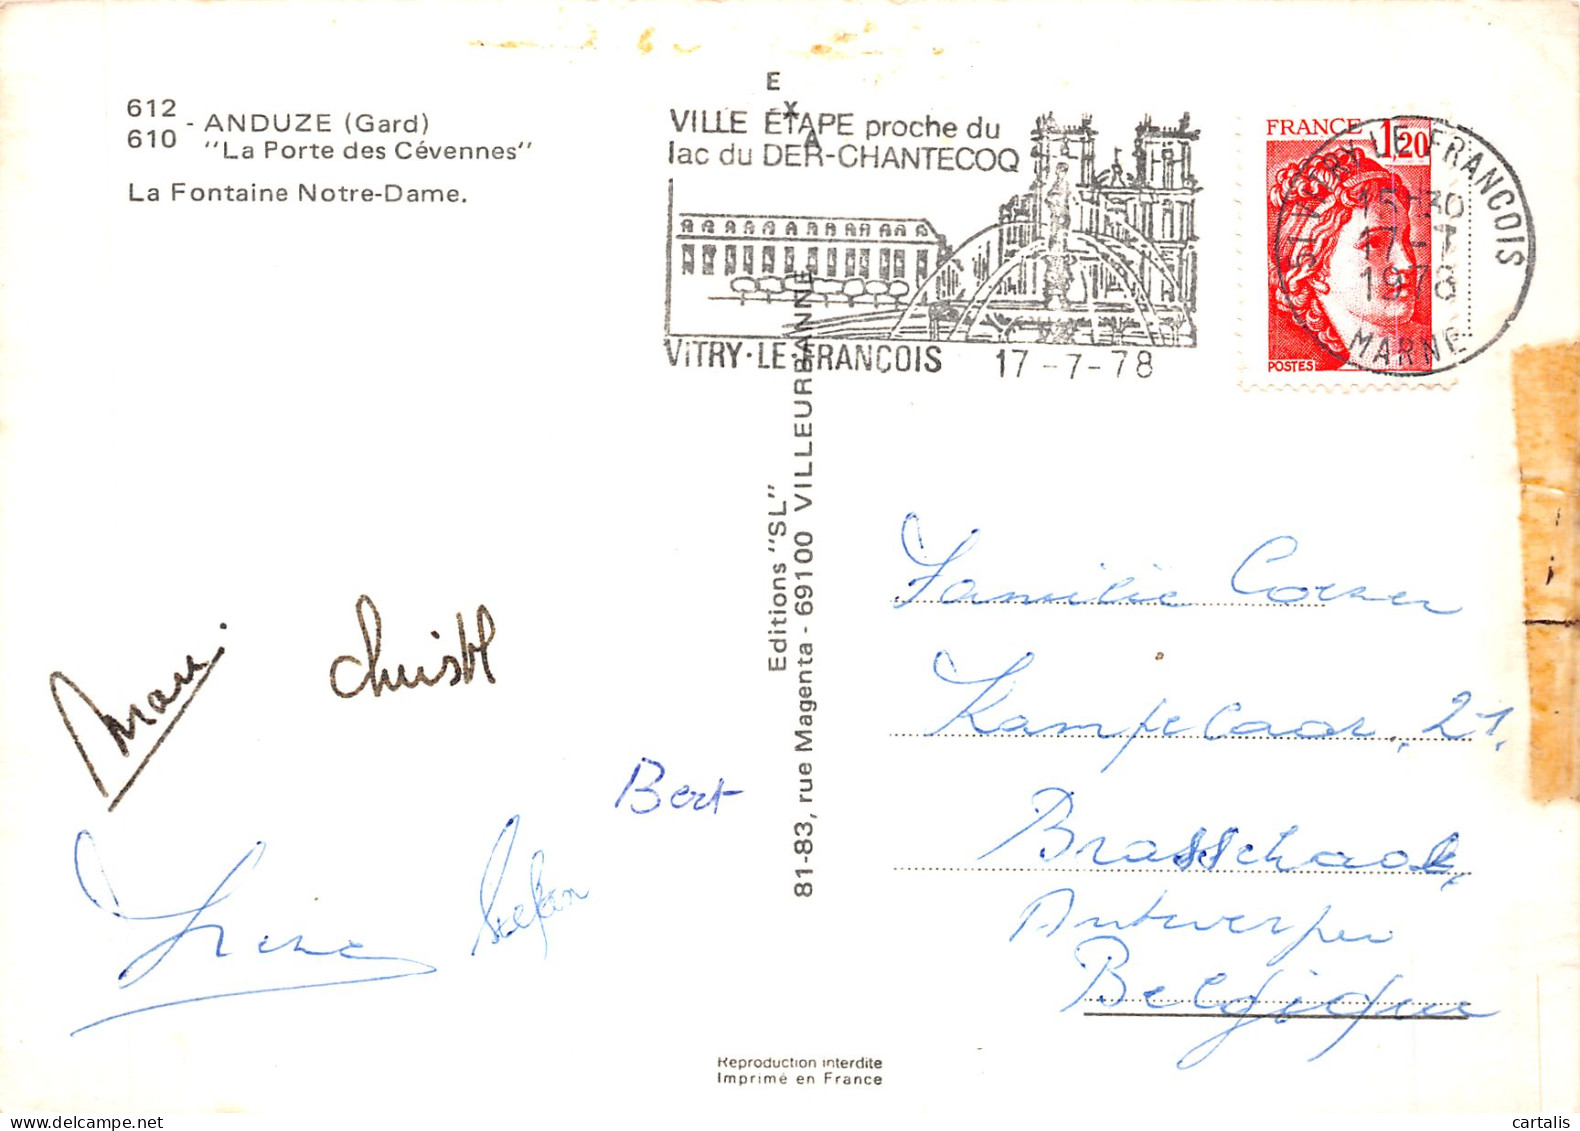 612
610 - ANDUZE (Gard)
"La Porte des Cévennes"
La Fontaine Notre-Dame.
EXA
VILLE ÉTAPE proche du
lac du DER-CHANTECOQ
VITRY-LE-FRANÇOIS 17-7-78
FRANCE 1,20
POSTES
51 VITRY LE FRANCOIS
15H30
17-7
1978
MARNE
Editions "SL"
81-83, rue Magenta - 69100 VILLEURBANNE
Familie
Kampelaar. 21.
Brasschaat,
Antwerpen
Belgique
Marc.
Christl
Bert
Irène
Stefan
Reproduction interdite
Imprimé en France
cartalis